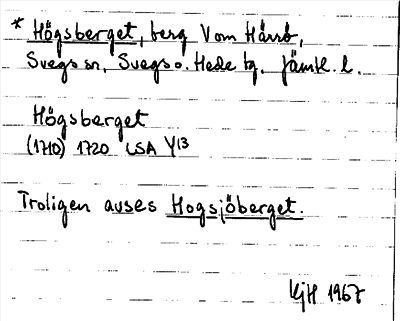 * Högsberget, berg V om Härrö,
Svegs sn, Svegs o. Hede tg, Jämtl. l.
Högsberget
(1710) 1720 LSA Y13
Troligen avses Hogsjöberget.
KjH 1967